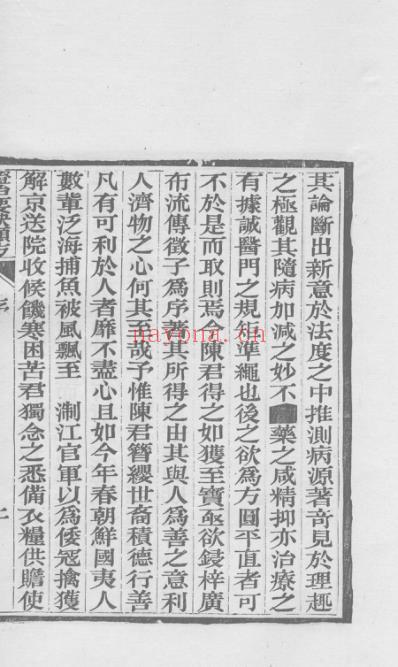 其論斷出新意於法度之中推測病源著奇見於理趣
之極觀其隨病加減之妙不 藥之咸精抑亦治療之
有據誠醫門之規矩準繩也後之欲為方圓平直者可
不於是而取則焉今陳君得之如獲至寶亟欲鋟梓廣
布流傳徵予為序著其所得之由其與人為善之意利
人濟物之心何其至哉予惟陳君簪纓世裔積德行善
凡有可利於人者靡不盡心且如今年春朝鮮國夷人
數輩泛海捕魚被風飄至 淛江官軍以為倭冦擒獲
解京送院收候饑寒困苦君獨念之悉備衣糧供贍使
序
nayona.cn